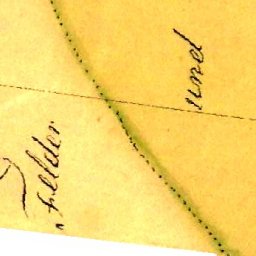 und
Felder